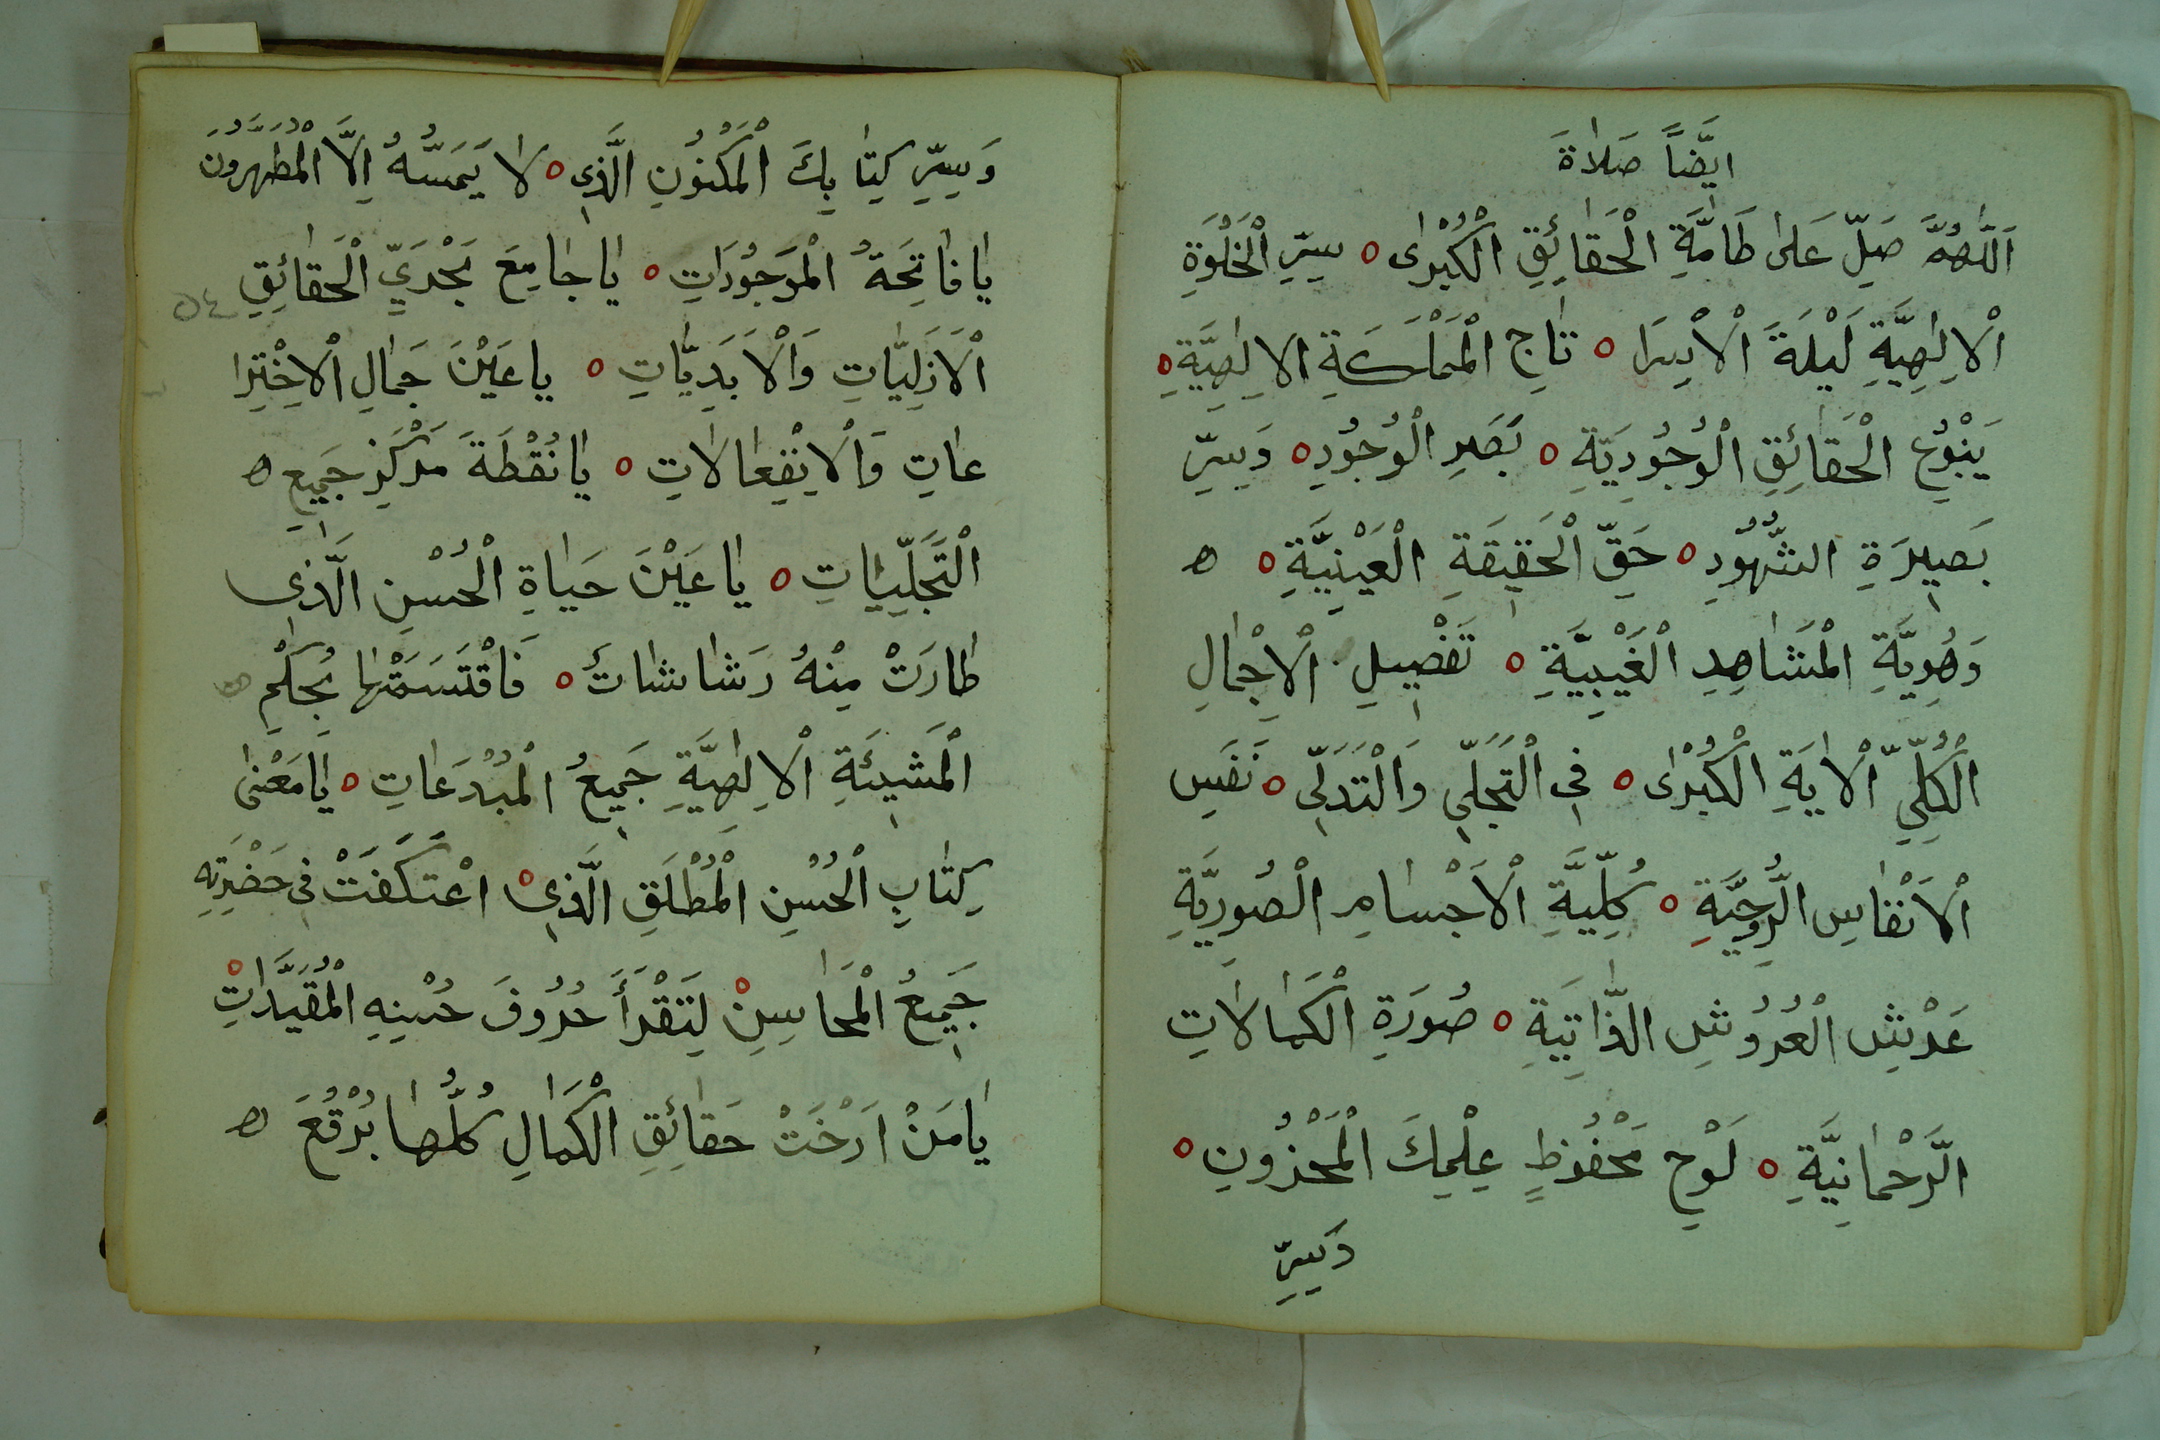 ايَّضاً صَلاةَ
اَللّهُمَّ صَلِّ عَلىٰ طَامَّةِ الْحَقٰائِقِ الْكُبْرٰى ه سِرِّ الْخَلْوَةِ
الْاِلٰهِيَّةِ لَيْلَةَ الْاِسْرَا ه تٰاجِ الْمَمْلَكَةِ الاِلٰهِيَّةِ ه
يَنْبُوْعِ الْحَقٰائِقِ الْوُجُودِيَّةِ ه بَصَرِ الْوُجُودِ ه وَسِرِّ
بَصِيرَةِ الشُّهُودِ ه حَقِّ الْحَقِيقَةِ الْعَيْنِيَّةِ ه ه
وَهُوِيَّةِ الْمَشٰاهِدِ الْغَيْبِيَّةِ ه تَفْصِيلِ الْاِجْمٰالِ
الْكُلِّيِّ الْاٰيَةِ الْكُبْرٰى ه فِى الْتَجَلِّي وَالْتَدَلِّى ه نَفَسِ
الْاَنْفٰاسِ الرُّوحِيَّةِ ه كُلِّيَّةِ الْاَجْسٰامِ الْصُورِيَّةِ
عَرْشِ الْعُرُوْشِ الذّٰاتِيَةِ ه صُورَةِ الْكَمٰالَاتِ
الَرَّحْمٰانِيَّةِ ه لَوْحِ مَحْفُوظٍ عِلْمِكَ الْمَخْزُونِ ه
وَسِرِّ
وَسِرِّ كِتٰابِكَ الْمَكْنُوْنِ الَّذِى ه لَا يَمَسُّهُ اِلَّا الْمُطَهَّرُونَ
يٰا فٰاتِحَةُ الْمَوْجُوْدَاتِ ه يٰا جٰامِعَ بَحْرَيِّ الْحَقٰائِقِ
٥٤
الْاَزَلِيّٰاتِ وَالْاَبَدِيّٰاتِ ه يا عَيْنَ جَمٰالِ الْاِخْتِرا
عٰاتِ وَالْاِنْفِعٰالَاتِ ه يٰا نُقْطَةَ مَرْكَزِ جَمِيعِ ه
الْتَجَلِّيٰاتِ ه يٰا عَيْنَ حَيٰاةِ الْحُسْنِ الَّذِى
طٰارَتْ مِنْهُ رَشٰاشٰاتٌ ه فَاقْتَسَمَتْهٰا بِحُكْمِ ه
الْمَشِيئَةِ الْاِلٰهِيَّةِ جَمِيعُ الْمُبْدَعٰاتِ ه يٰا مَعْنىٰ
كِتٰابِ الْحُسْنِ الْمُطْلَقِ الَّذِى ه اعْتَكَفَتْ فِى حَضْرَتِهِ
جَمِيعُ الْمَحٰاسِنِ ه لِتَقْرَأَ حُرُوفَ حُسْنِهِ الْمُقَيَّدٰاتِ ه
يٰا مَنْ اَرْخَتْ حَقٰائِقِ الْكَمٰالِ كُلُّهٰا بُرْقُعَ ه